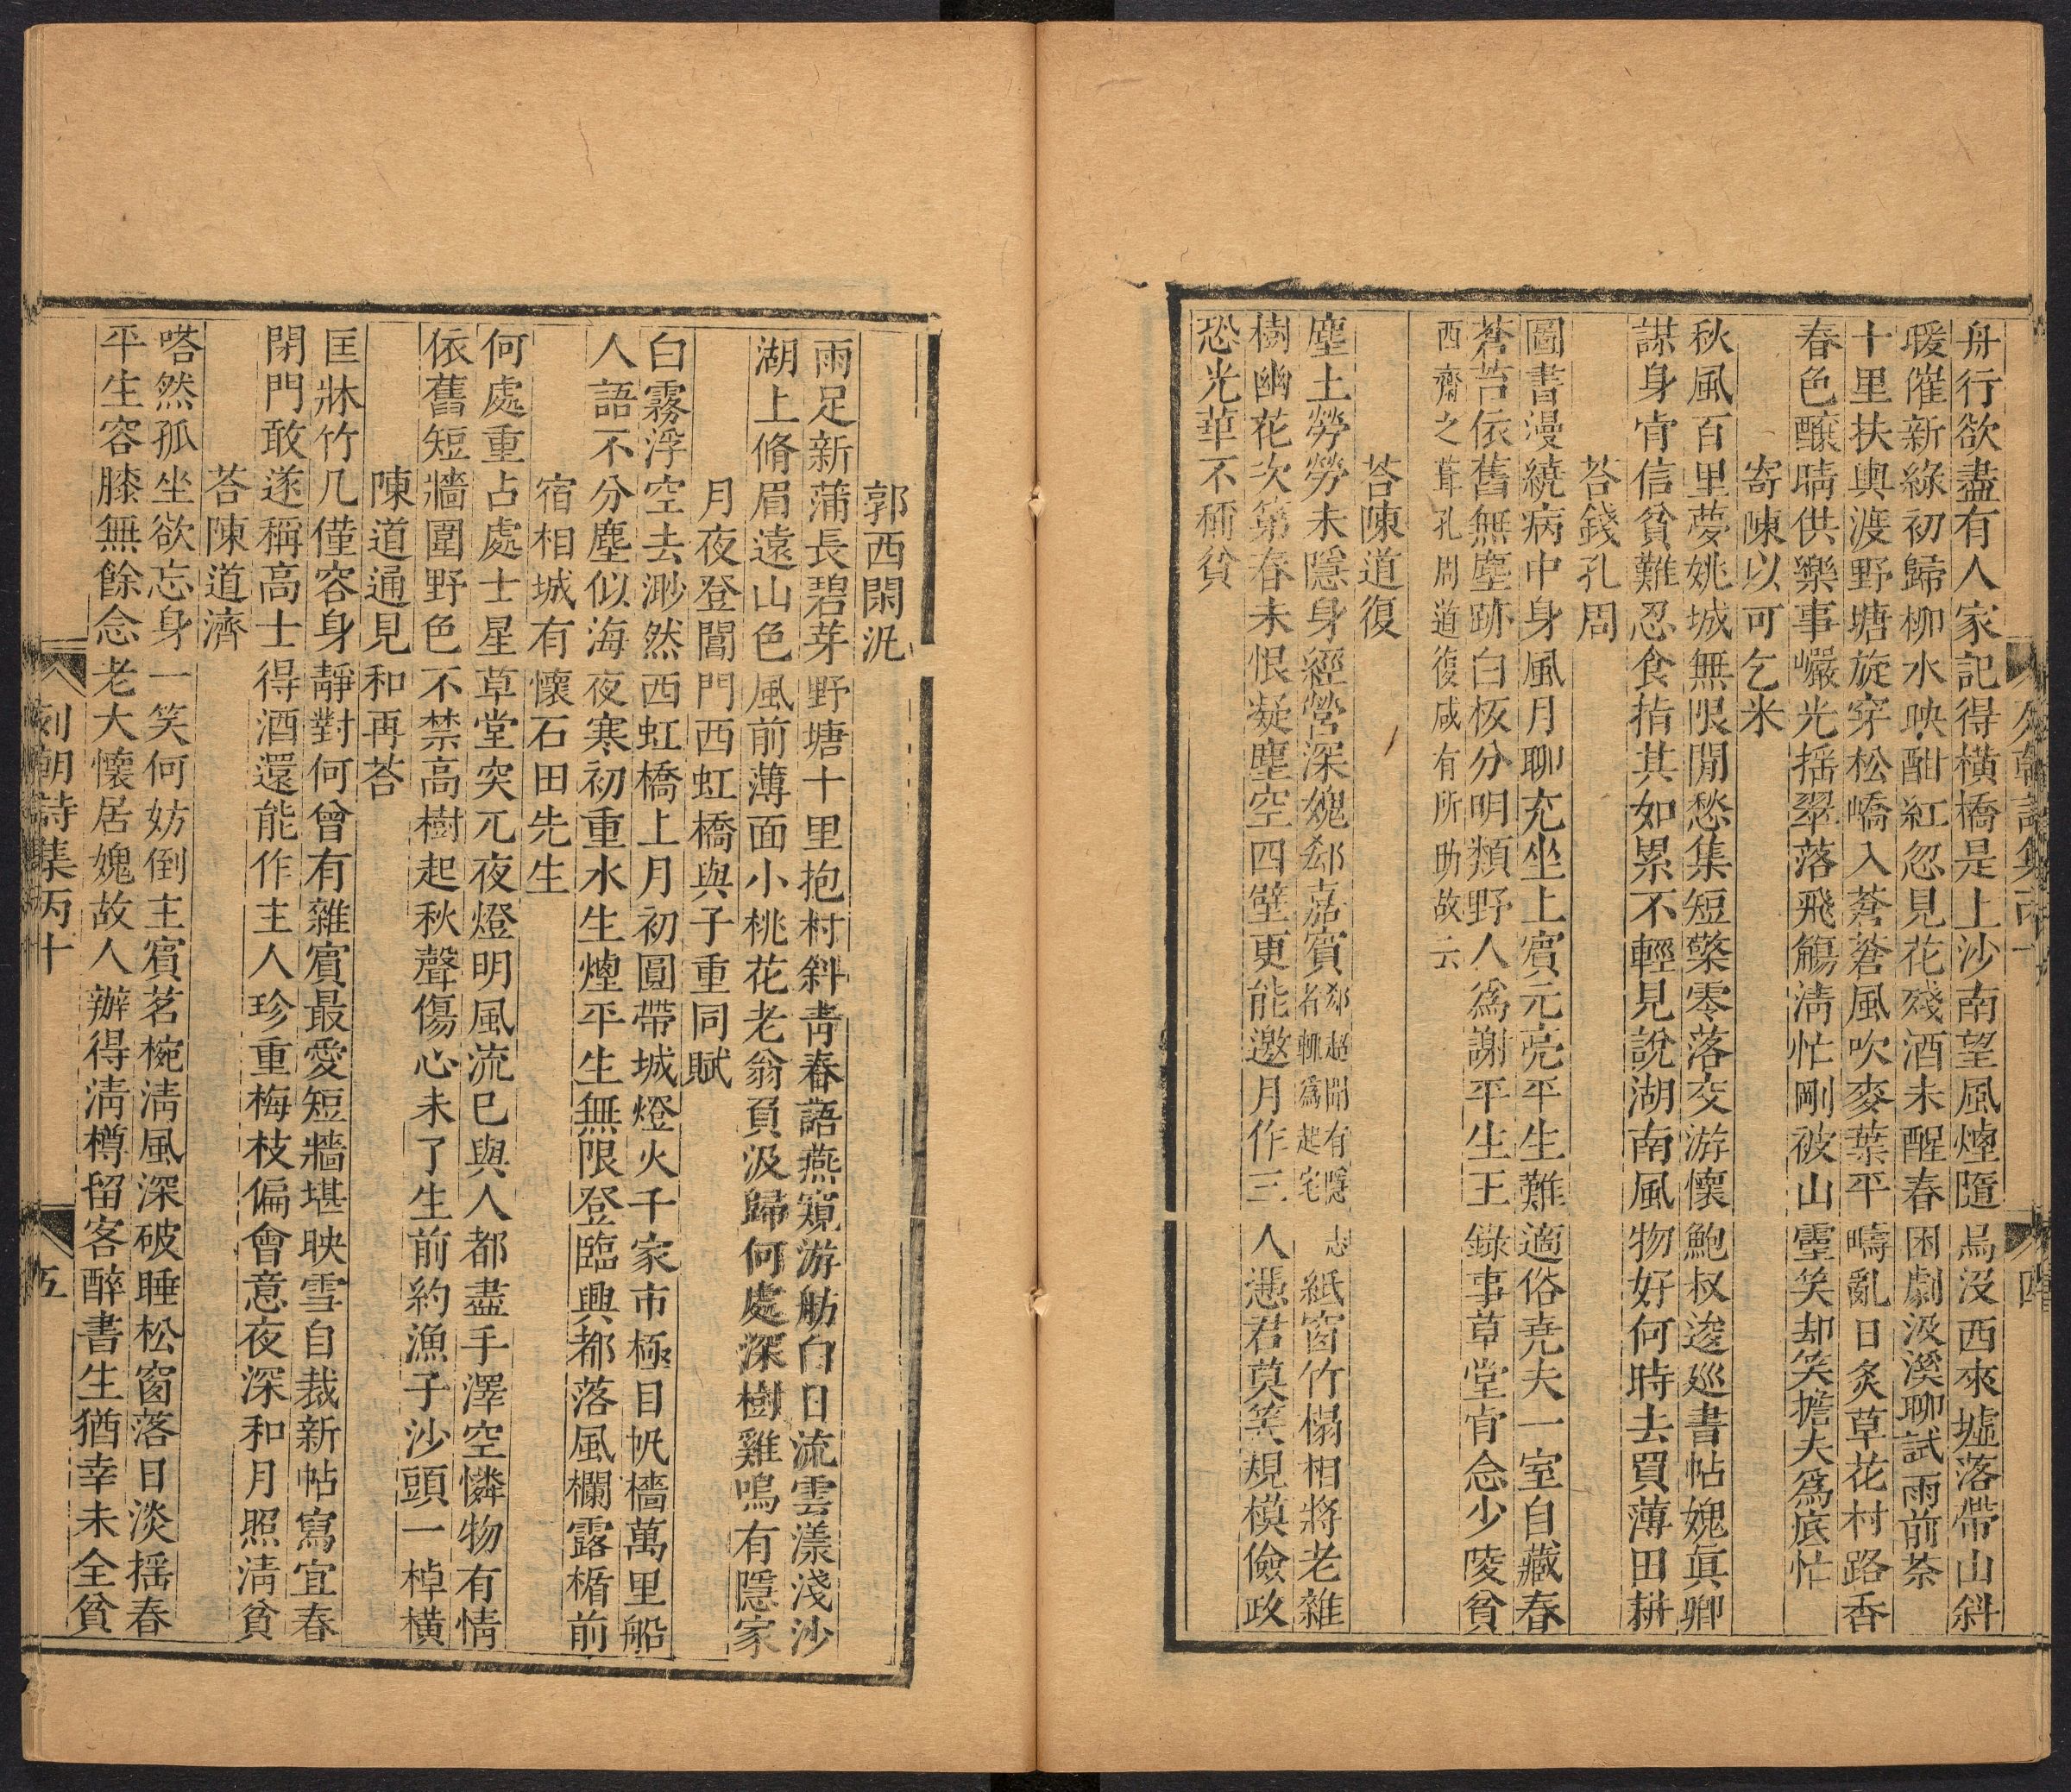 舟行欲盡有人家記得橫橋是上沙南望風煙隨鳥沒西來墟落帶山斜
暖催新綠初歸柳水映酣紅忽見花殘酒未醒春困劇汲溪聊試雨前茶
十里扶輿渡野塘旋穿松嶠入蒼蒼風吹麥葉平疇亂日炙草花村路香
春色釀晴供樂事巖光揺翠落飛觴淸忙剛被山靈笑却笑擔夫爲底忙
寄陳以可乞米
秋風百里夢姚城無限閒愁集短檠零落交游懷鮑叔逡廵書帖媿眞卿
謀身肯信貧難忍食指其如累不輕見說湖南風物好何時去買薄田耕
荅錢孔周
圖書漫繞病中身風月聊充坐上賓元亮平生難適俗尭夫一室自藏春
蒼苔依舊無塵跡白板分明類野人爲謝平生王錄事草堂肯念少陵貧
西齋之葺孔周道復咸有所助故云
荅陳道復
塵土勞勞未隱身經營深媿郄嘉賓郄超聞有隱者輙爲起宅志紙窗竹榻相將老雜
樹幽花次第春未恨凝塵空四壁更能邀月作三人憑君莫笑規模儉政
恐光華不稱貧
列朝詩集丙十
四
郭西閑汎
雨足新蒲長碧芽野塘十里抱村斜靑春語燕窺游舫白日流雲漾淺沙
湖上脩眉遠山色風前薄面小桃花老翁負汲歸何處深樹雞鳴有隱家
月夜登閶門西虹橋與子重同賦
白霧浮空去渺然西虹橋上月初圓帶城燈火千家市極目帆檣萬里船
人語不分塵似海夜寒初重水生煙平生無限登臨興都落風欄露楯前
宿相城有懷石田先生
何處重占處士星草堂突兀夜燈明風流已與人都盡手澤空憐物有情
依舊短牆圍野色不禁高樹起秋聲傷心未了生前約漁子沙頭一棹橫
陳道通見和再荅
匡牀竹几僅容身靜對何曾有雜賓最愛短牆堪映雪自裁新帖寫宜春
閉門敢遂稱高士得酒還能作主人珍重梅枝偏會意夜深和月照淸貧
荅陳道濟
嗒然孤坐欲忘身一笑何妨倒主賓茗椀淸風深破睡松窗落日淡揺春
平生容膝無餘念老大懷居媿故人辦得淸樽留客醉書生猶幸未全貧
列朝詩集丙十
五